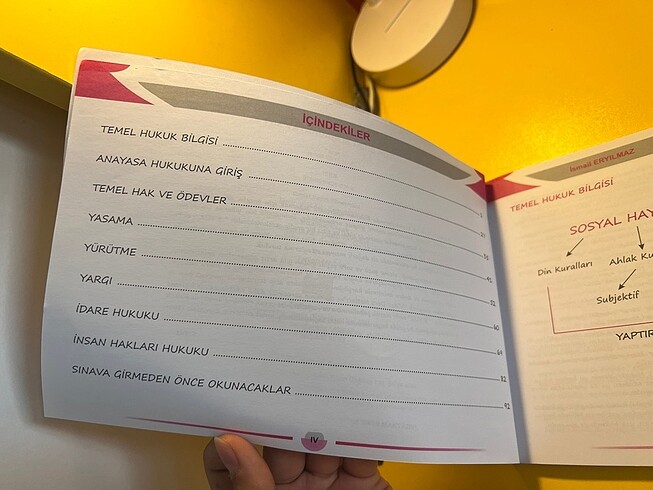 İÇİNDEKİLER
TEMEL HUKUK BİLGİSİ
ANAYASA HUKUKUNA GİRİŞ
TEMEL HAK VE ÖDEVLER
YASAMA
YÜRÜTME
YARGI
İDARE HUKUKU
İNSAN HAKLARI HUKUKU
SINAVA GİRMEDEN ÖNCE OKUNACAKLAR 92
IV
İsmail ERYILMAZ
TEMEL HUKUK BİLGİSİ
SOSYAL HAY
Din Kuralları Ahlak Ku
Subjektif
YAPTIR